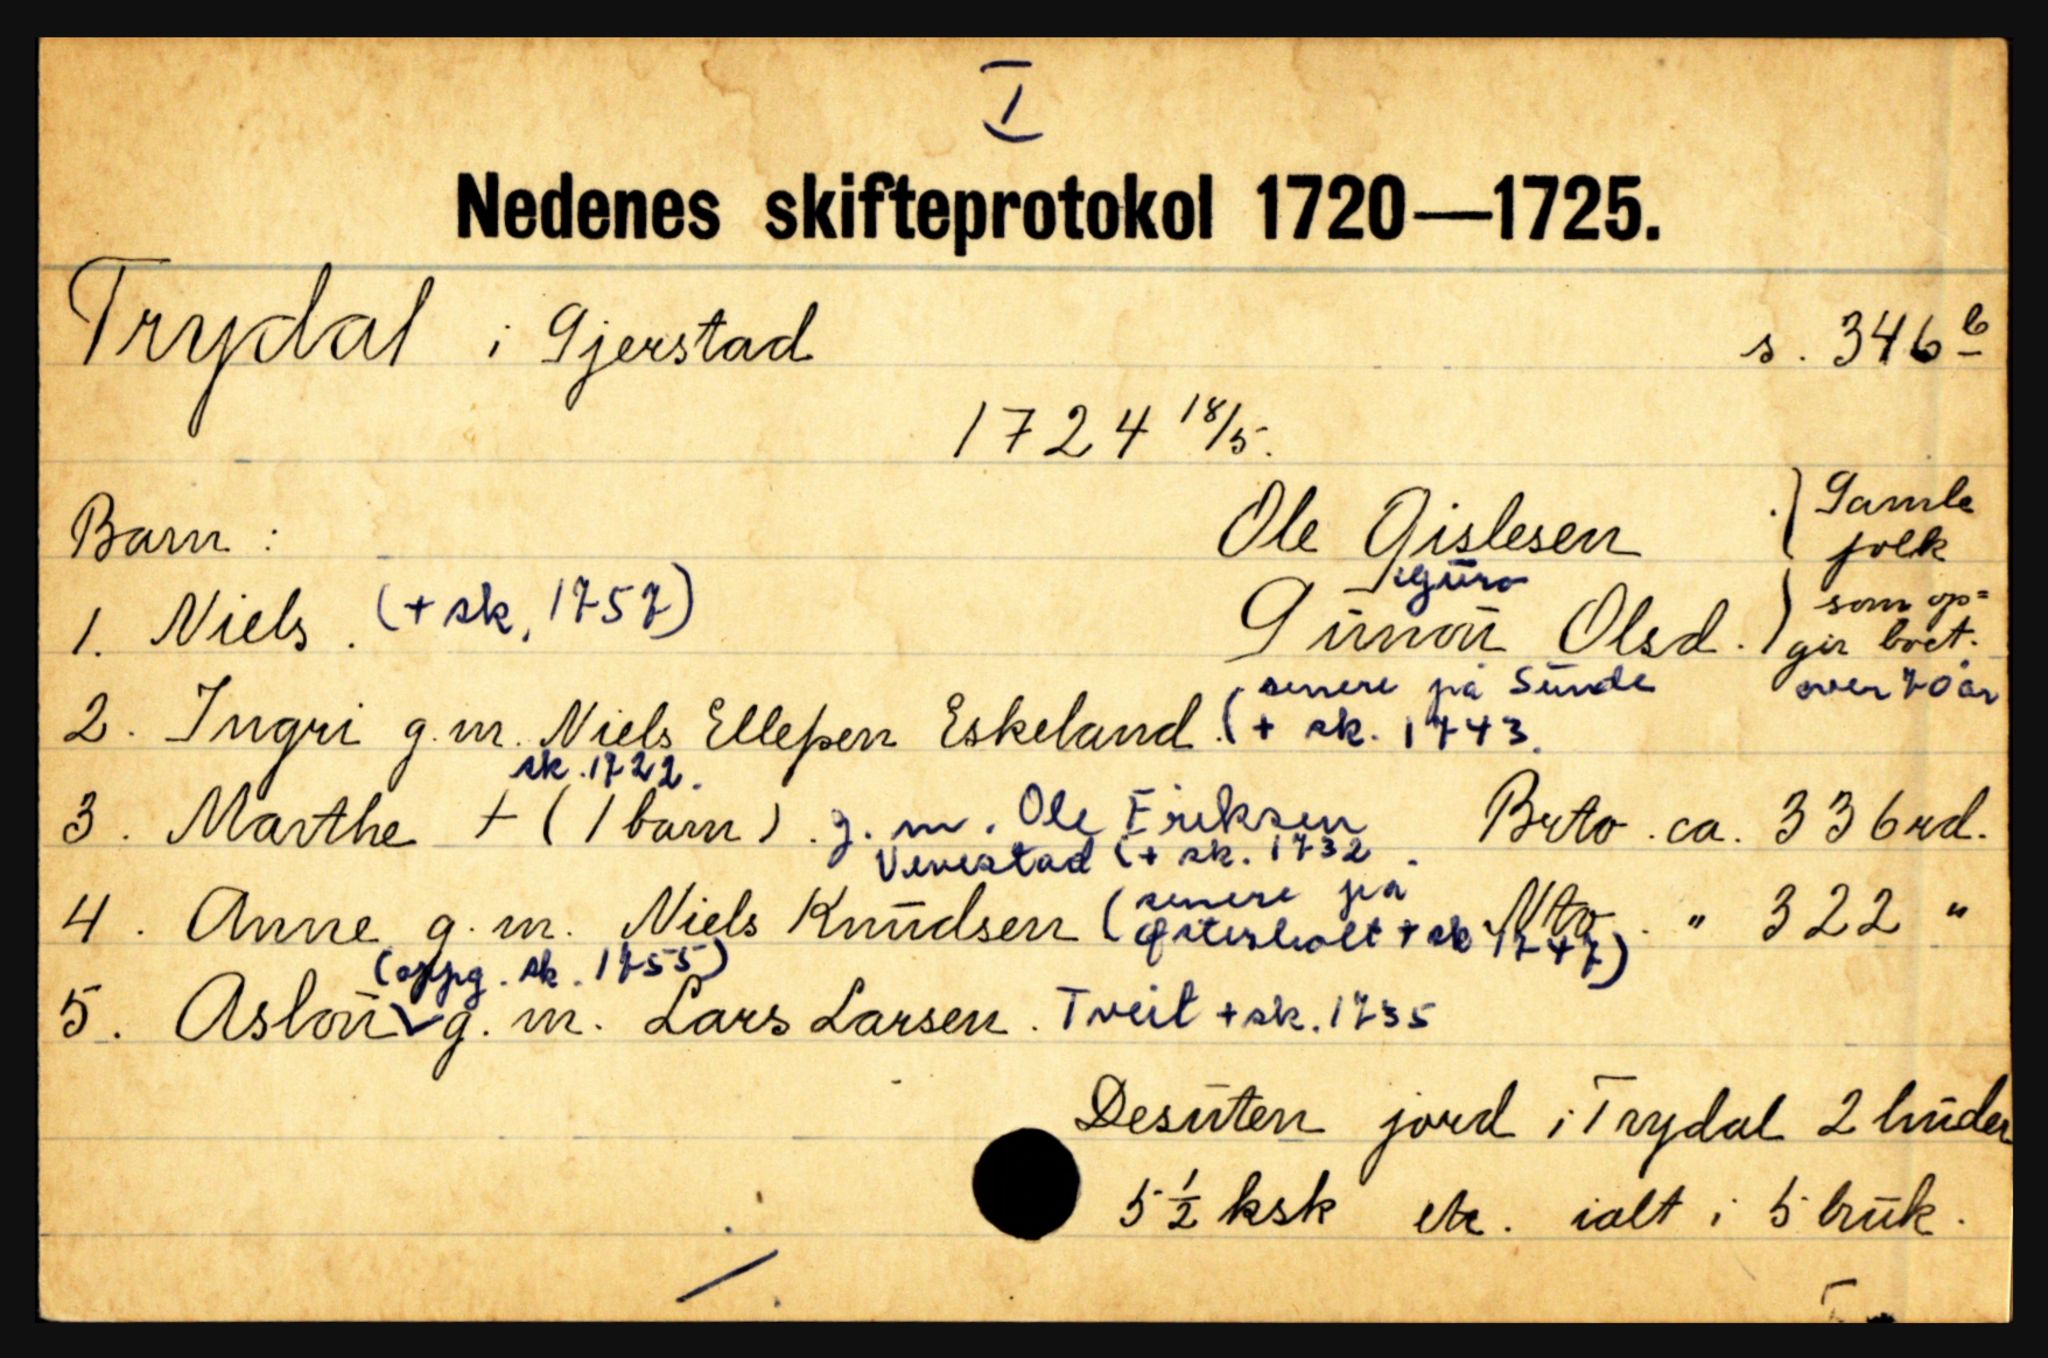 I
Nedenes skifteprotokol 1720—1725.
Trydal i Gjerstad s. 346 b
1724 18/5.
Barn: Ole Gislesen } Gamle folk
Guro
1. Niels. (+ sk. 1757) Gunou Olsd. } som op= gir boet.
senere på Sunde over 70 år
2. Ingri g.m. Niels Ellefsen Eskeland. (+ sk. 1743.
sk. 1722.
3. Marthe + (1 barn). g.m. Ole Eriksen Brto. ca. 336 rd.
Vevestad (+ sk. 1732.
4. Anne g.m. Niels Knudsen (senere på Østerholt + sk 1747) Nto. " 322 "
(oppg. sk. 1755)
5. Aslou g.m. Lars Larsen. Tveit + sk. 1735
Desuten jord i Trydal 2 huder
5 1/2 ksk etc. ialt i 5 bruk.